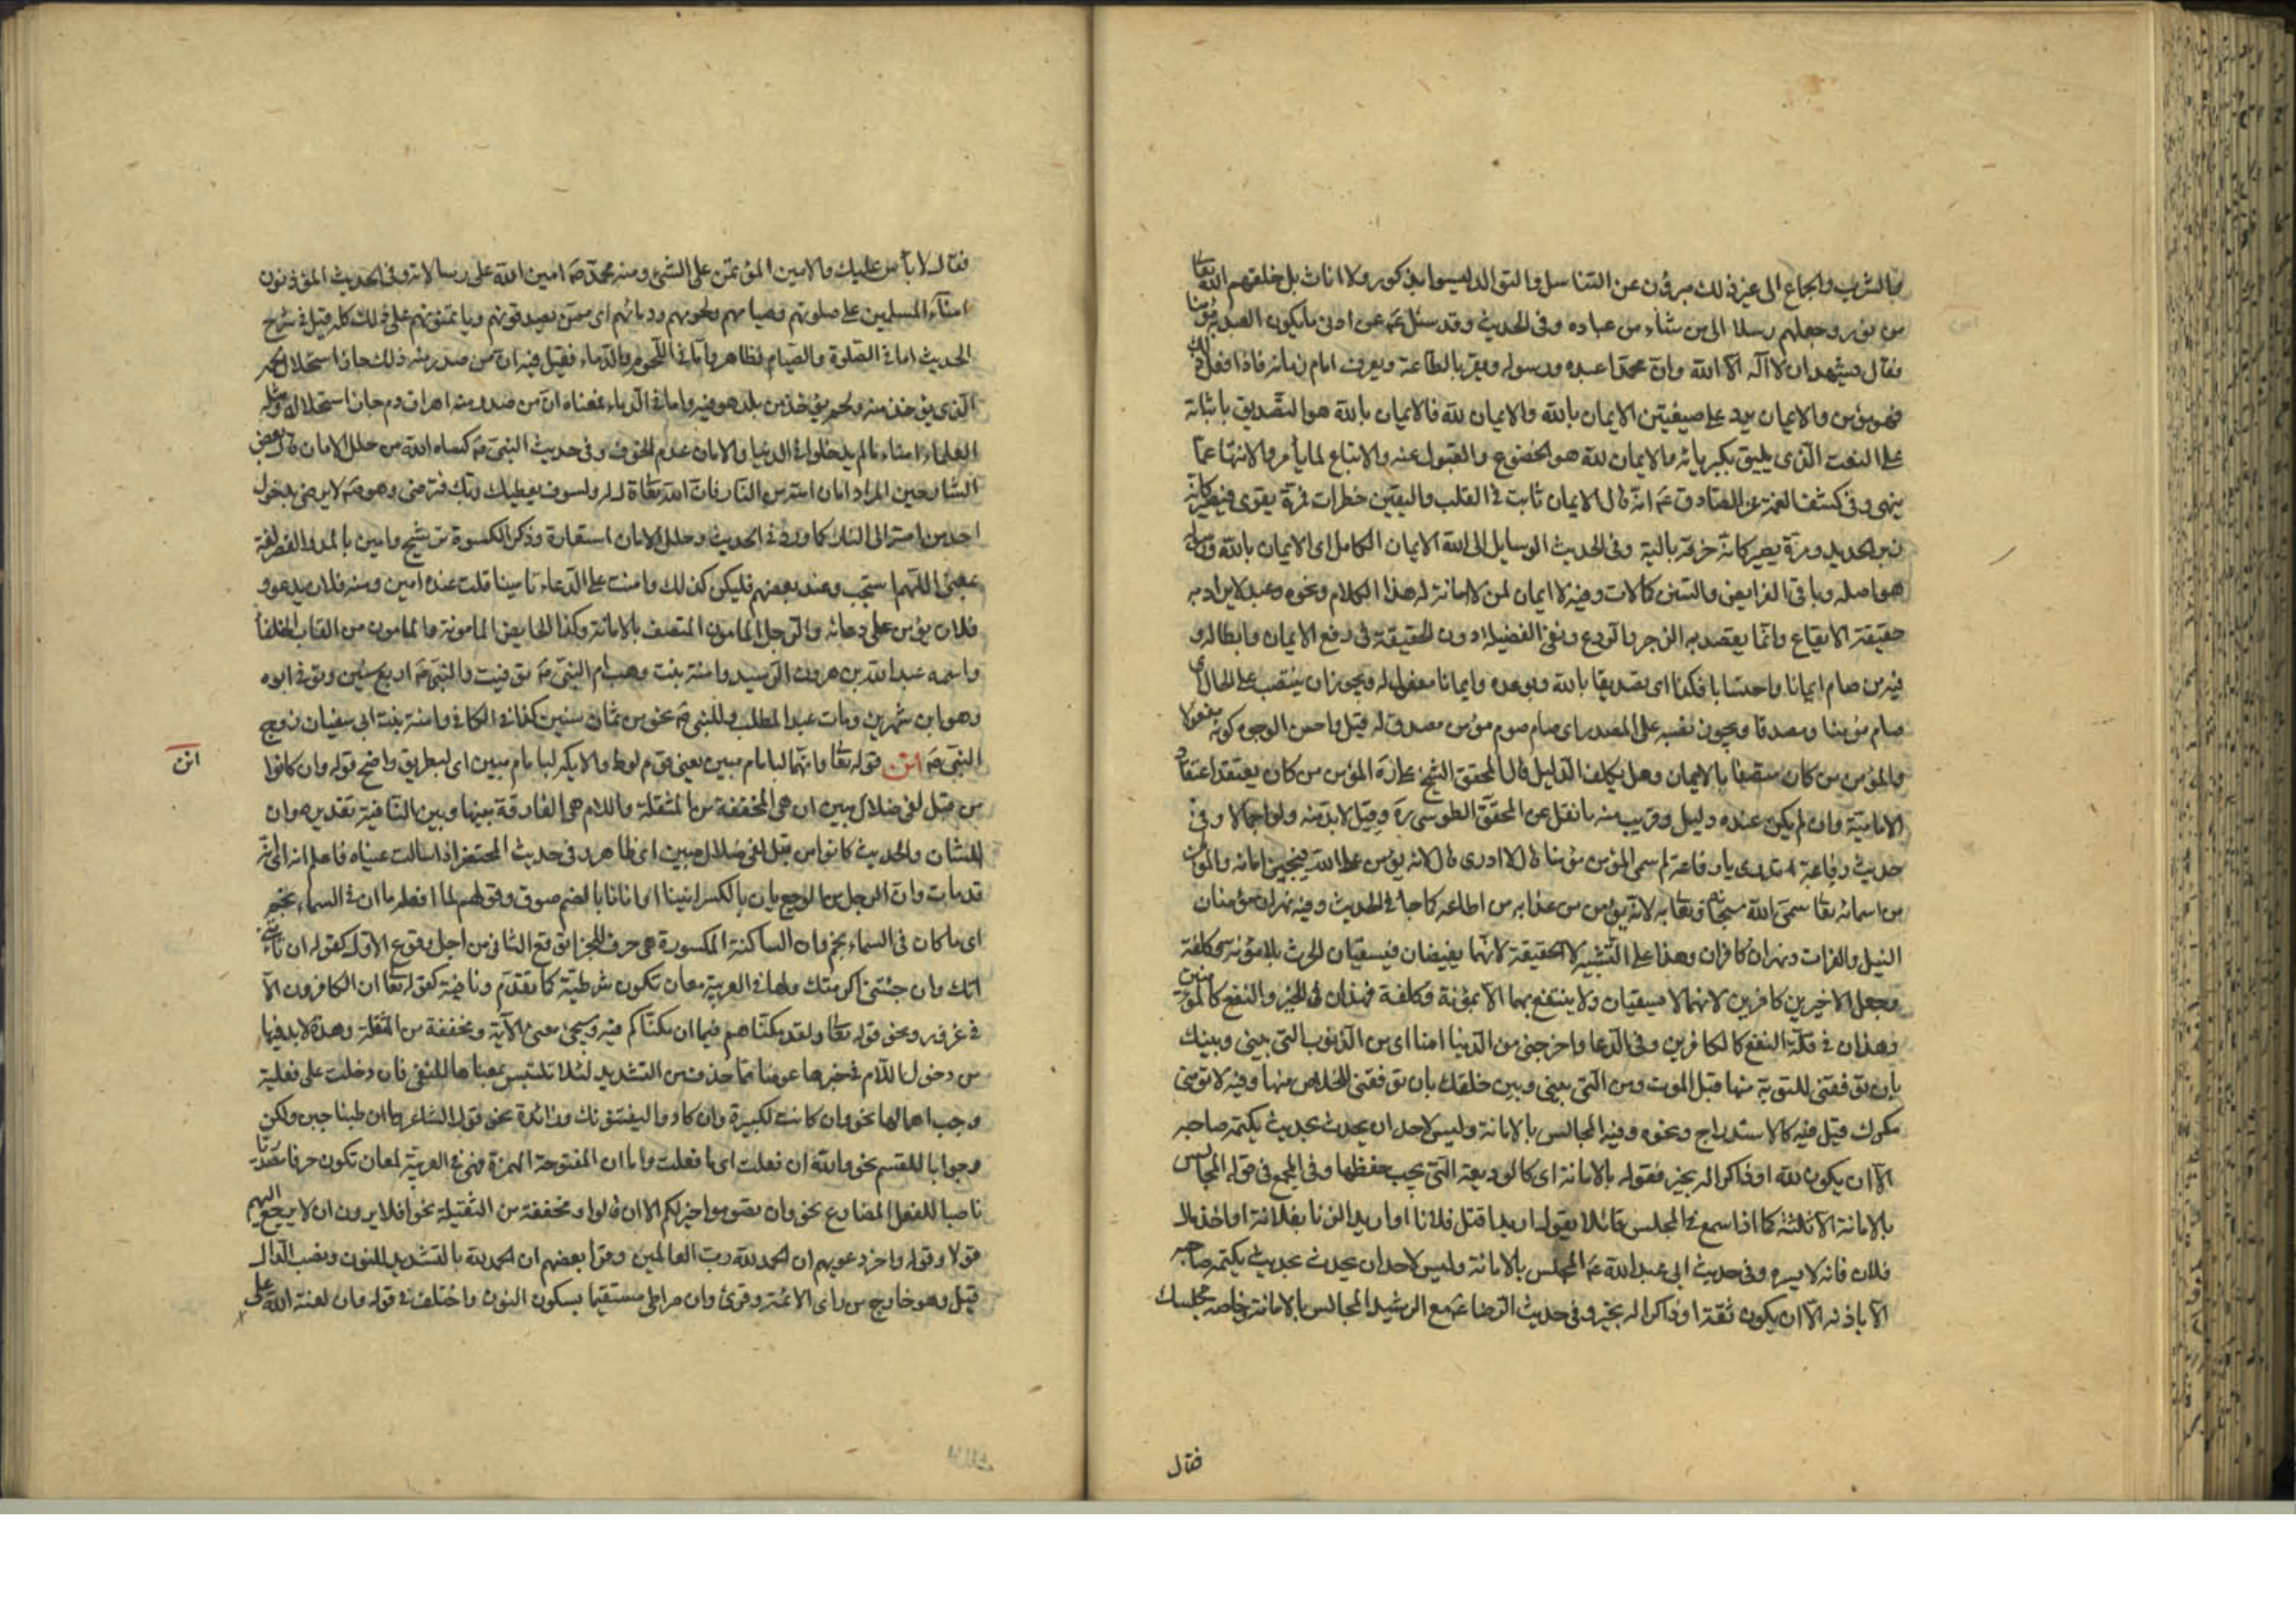 والشرب والجماع الى غير ذلك مبرؤن عن التناسل والتوالد ليسوا بذكور ولا اناث بل خلقهم الله تعالى
من نور وجعلهم رسلا الى من شاء من عباده وفى الحديث وقد سئل عن ادنى ما يكون العبد مؤمنا
فقال يشهد ان لا اله الا الله وان محمدا عبده ورسوله ويقر بالطاعة ويعرف امام زمانه فاذا فعل ذلك
فهو مؤمن والايمان يرد على صيغتين الايمان بالله والايمان لله فالايمان بالله هو التصديق باثباته
على النعت الذى يليق بكبريائه والايمان لله هو الخضوع والقبول عنه والاتباع لما يأمر والانتهاء عما
ينهى وفى كشف الغمة عن الصادق ع انه قال الايمان ثابت فى القلب واليقين خطرات فمرة يقوى فيصير كانه
زبر الحديد ومرة يصير كانه خرقة بالية وفى الحديث الوسايل الى الله الايمان الكامل اى الايمان بالله
هو اصله وباقى الفرايض والسنن كمالات وفيه لا ايمان لمن لا امانة له هذا الكلام ونحوه وعيد لا يراد به
حقيقة الايقاع وانما يقصد به الزجر والردع ونفى الفضيلة دون الحقيقة فى رفع الايمان وابطاله و
فيه من صام ايمانا واحتسابا فكذا اى تصديقا بالله وبوعده وايمانا مفعول له ويجوز ان ينتصب على الحال اى
صام مؤمنا ومصدقا ويجوز نصبه على المصدر اى صام صوم مؤمن مصدق له قيل واحسن الوجوه كونه مفعولا
والمؤمن من كان متصفا بالايمان وهل يكلف الدليل قال المحقق الشيخ على ره المؤمن من كان يعتقد اعتقاد
الامامية وان لم يكن عنده دليل وقريب منه ما نقل عن المحقق الطوسى ره وقيل لابد منه ولو اجمالا وفى
حديث رفاعة اتدرى يا رفاعة لم سمى المؤمن مؤمنا قال لا ادرى قال لانه يؤمن على الله فيجيز امانه والمؤمن
من اسمائه تعالى سمى الله سبحانه وتعالى به لانه يؤمن من عذابه من اطاعه كما جاء فى الحديث وفيه نهران مؤمنان
النيل والفرات ونهران كافران وهذا على التشبيه لا الحقيقة لانهما يفيضان فيسقيان الحرث بلا مؤنة وكلفة
وجعل الاخيرين كافرين لانهما لا يسقيان ولا ينتفع بهما الا بمؤنة وكلفة فهذان فى الخير والنفع كالمؤمنين
وهذان فى قلة النفع كالكافرين وفى الدعا واخرجنى من الدنيا امنا اى من الذنوب التى بينى وبينك
بان توفقنى للتوبة منها قبل الموت ومن التى بينى وبين خلقك بان توفقنى للخلاص منها وفيه لا تؤمنى
مكرك قيل فيه كالاستدراج ونحوه وفيه المجالس بالامانة وليس لاحد ان يحدث بحديث يكتمه صاحبه
الا ان يكون ثقة او ذاكرا له بخير فقوله بالامانة اى كالوديعة التى يجب حفظها وفى المجمع فى قوله المجالس
بالامانة الا ثلثة كما اذا سمع فى المجلس قائلا يقول اريد اقتل فلانا او اريد الزنا بفلانة او اخذ مال
فلان فانه لا يسره وفى حديث ابى عبد الله ع المجلس بالامانة وليس لاحد ان يحدث بحديث يكتمه صاحبه
الا باذنه الا ان يكون ثقة او ذاكرا له بخير وفى حديث الرضا ع مع الرشيد المجالس بالامانة وخاصة مجلسك
فقال
فقال لا بأس عليك والامين المؤتمن على الشئ ومنه محمد ص امين الله على رسالاته وفى الحديث المؤذنون
امناء المسلمين على صلوتهم وصيامهم ولحومهم ودمائهم اى ممن يصدقونهم ويأتمنونهم على ذلك كله قيل فى شرح
الحديث امانة الصلوة والصيام فظاهر واما فى اللحوم والدماء فقيل فيه ان من صدر منه ذلك جاز استحلال لحم
الذى يؤخذ منه ولحم يؤخذ من بلد هو فيه واما فى الدماء فمعناه ان من صدر منه اهراق دم جاز استحلاله ومثله
العلماء امناء ما لم يدخلوا فى الدنيا والامان عدم الخوف وفى حديث النبى ص كساه الله من حلل الامان قال بعض
الشارحين المراد امان امته من النار فان الله تعالى قال له ولسوف يعطيك ربك فترضى وهو ص لا يرضى بدخول
احد من امته الى النار كما ورد فى الحديث وحلل الامان استعارة وذكر الكسوة ترشيح وامين بالمد والقصر لغة
بمعنى اللهم استجب وعند بعضهم فليكن كذلك وامنت على الدعاء تامينا قلت عنده امين ومنه فلان يدعو و
فلان يؤمن على دعائه والرجل المامون المتصف بالامانة وكذا الحايض المامونة والمامون من القاب الخلفاء
واسمه عبد الله بن هرون الرشيد وامنة بنت وهب ام النبى ص توفيت والنبى ص اربع سنين وتوفى ابوه
وهو ابن شهرين ومات عبد المطلب وللنبى ص نحو من ثمان سنين كذا فى الكافى وامنة بنت ابى سفيان زوج
النبى ص انن قوله تعالى وانهما لبامام مبين يعنى قوم لوط والايكة لبامام مبين اى لبطريق واضح قوله وان كانوا
انن
من قبل لفى ضلال مبين ان هى المخففة من المثقلة واللام هى الفارقة بينها وبين النافية تقديره وان
الشان والحديث كانوا من قبل لفى ضلال مبين اى ظاهر وفى حديث المحتضر اذا سالت عيناه فاعلم انه
قد مات وان الرجل من الوجع يان بالكسر انينا او انانا بالضم صوت وقولهم لا افعله ما ان فى السماء نجم
اى ما كان فى السماء نجم وان الساكنة المكسورة هى حرف للجزا يوقع الثانى من اجل وقوع الاول كقوله ان تأتنى
اتك وان جئتنى اكرمتك ولها فى العربية معان تكون شرطية كما تقدم ونافية كقوله تعالى ان الكافرون الا
فى غرور ونحو قوله تعالى ولقد مكناهم فيما ان مكناكم فيه وسيجئ معنى الآية ومخففة من الثقلة وهذه لابد فيها
من دخول اللام فى خبرها عوضا مما حذف من التشديد لئلا تلتبس بمعناها للنفى فان دخلت على فعلية
وجب اهمالها نحو وان كانت لكبيرة وان كادوا ليفتنونك وزائدة نحو قول الشاعر ما ان طبنا جبن ولكن
وجوابا للقسم نحو والله ان فعلت اى ما فعلت واما ان المفتوحة الهمزة فهى فى العربية لمعان تكون حرفا مصدريا
ناصبا للفعل المضارع نحو وان تصوموا خير لكم الا ان قالوا ومخففة من الثقيلة نحو افلا يرون ان لا يرجع اليهم
قولا وقوله واخر دعويهم ان الحمد لله رب العالمين وقرا بعضهم ان الحمد لله بالتشديد للنون ونصب الدال
قيل وهو خارج من راى الائمة وقرئ وان صراطى مستقيما بسكون النون واختلف فى قوله وان لعنة الله على